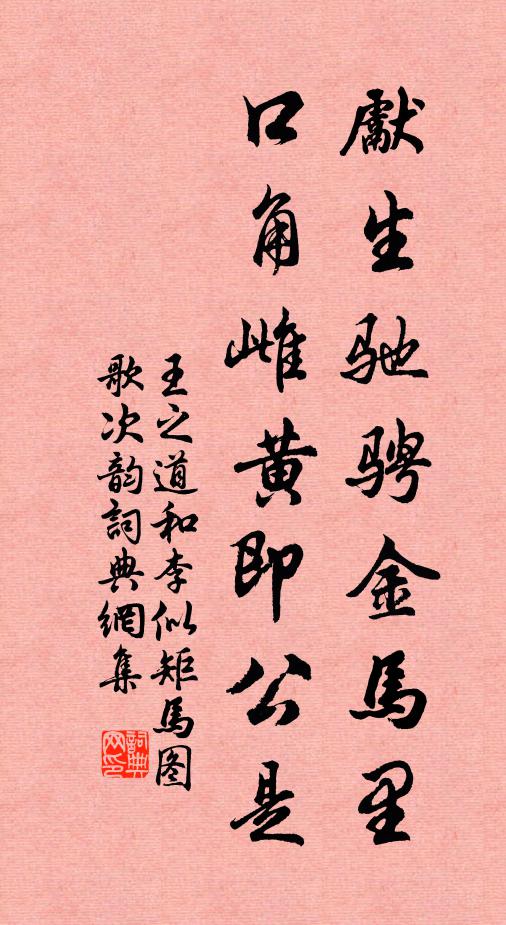 獻生馳骋金馬里
口角雌黄即公是
王之道和李似矩馬图
歌次韵詞典網集
詞典網印